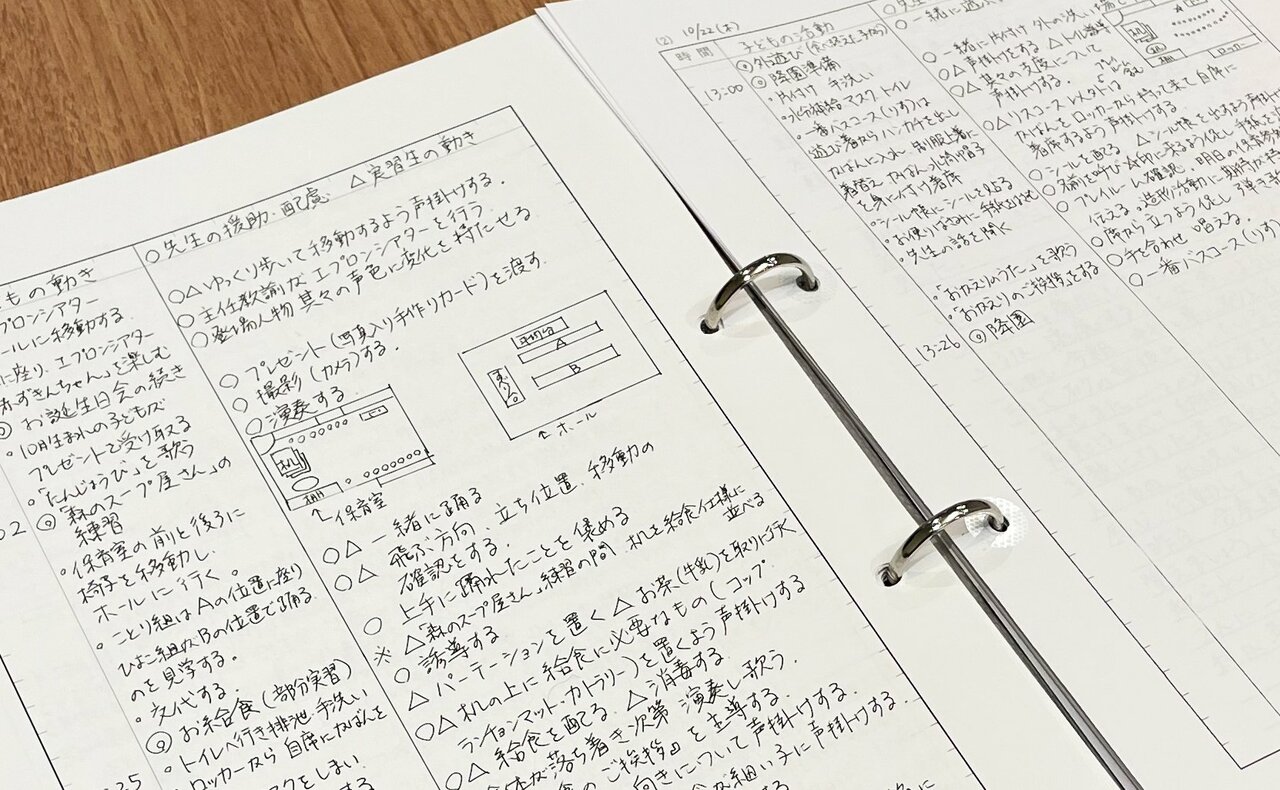 も の 動き
○先生の援助・配慮 △実習生の動き
プロンシアター
ールに移動する。
に座り、エプロンシアター
赤ずきんちゃん」を楽しむ
◎ お誕生日会の続き
・10月生まれの子どもが
プレゼントを受け取る
「たんじょうび」を歌う
◎「森のスープ屋さん」の
練習
・保育室の前と後ろに
椅子を移動し、
ホールに行く。
・ことり組はAの位置に座り
ひよこ組がBの位置で踊る
のを見学する。
・交代する。
◎ お給食(部分実習)
・トイレへ行き排泄・手洗い
ロッカーから自席にかばんを
スクをしまい
する
○△ゆっくり歩いて移動するよう声掛けする。
○主任教諭がエプロンシアターを行う。
○登場人物 其々の声色に変化を持たせる
○ プレゼント(写真入り手作りカード)を渡す。
○ 撮影(カメラ)する。
○演奏する。
A
B
↑ホール
↑保育室
○△ 一緒に踊る
○△ 飛ぶ方向、立ち位置、移動の
確認をする。
○ 上手に踊れたことを褒める
※ △「森のスープ屋さん」練習の間、机を給食仕様に並べる
○ 誘導する
△ パーテーションを置く △ お茶(牛乳)を取りに行く
○△ 机の上に給食に必要なもの(コップ
ランチョンマット・カトラリー)を置くよう声掛けする
給食を配る。△消毒する
○△ 全体が落ち着き次第 演奏し歌う。
食のご挨拶」を主導する。
向きについて声掛けする。
が細い子に声掛けする
(2) 10/22(木)
時間
子どもの活動
◎外遊び
◎ 降園準備
13:00
・片付け 手洗い
水分補給 マスク トイレ
・一番バスコース(りす)は
遊び着からハンカチを出し
かばんに入れ、制服上着に
着替え、かばん・水筒・帽子
を身に付け着席
・シール帳にシールを貼る
・先生の話を聞く
・「おかえりのうた」を歌う
・「おかえりのご挨拶」をする
13:26
◎降園
○ 一緒に遊ぶ
○ 一緒に片付け 外の洗い場で
○△ 声掛けをする △トイレ誘導
○△ 其々の支度について
声掛けする。
ロッカー
○△リスコース以外は
かばんをロッカーから持って来て自席に
着席するよう声掛けする。
○シールを配る △シール帳を出すよう声掛け
○名前を呼び
○プレイルーム確認。明日の
伝える。造形活動に期待が
○席から立つよう促し
○手を合わせ 唱える。
○一番バスコース(りす